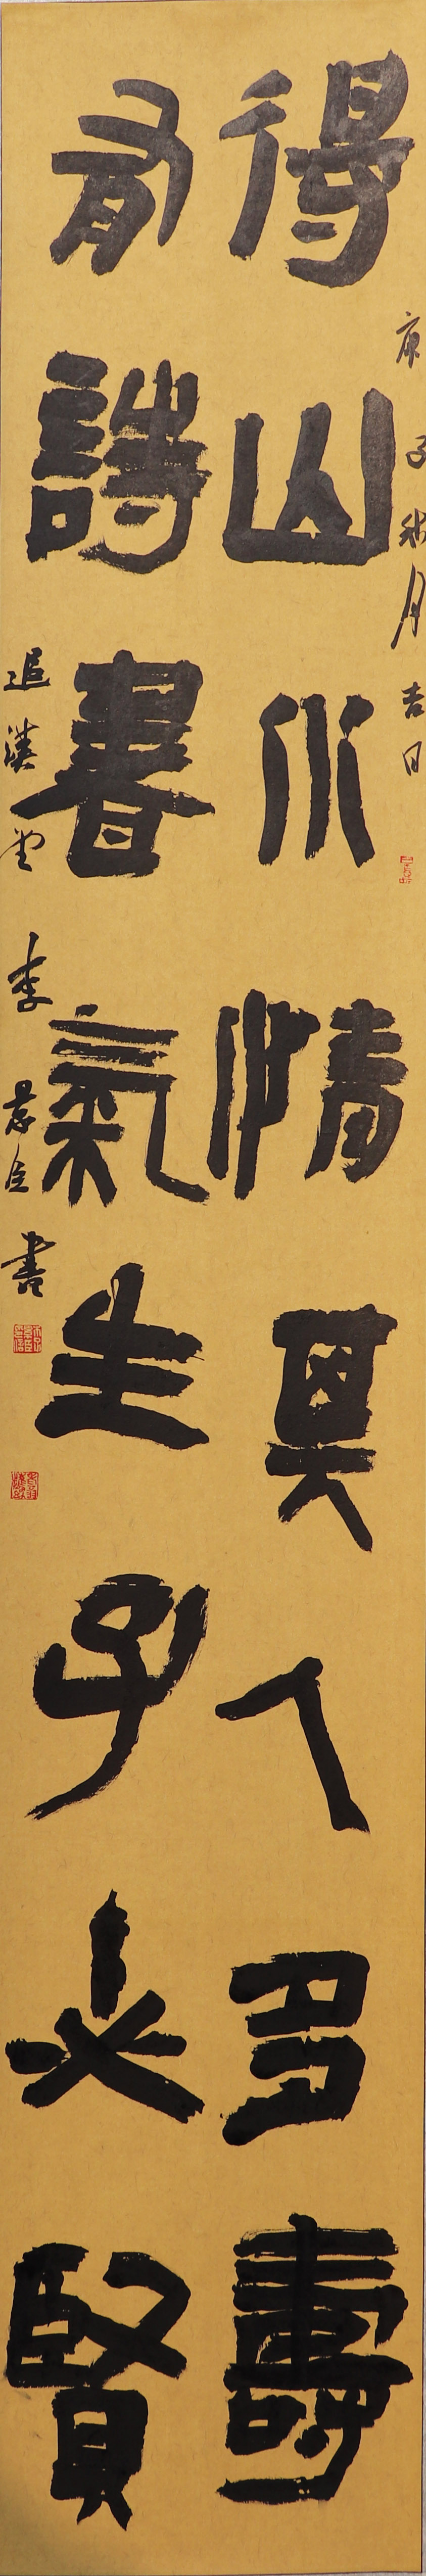 庚子秋月吉日
得山水情其人多壽
有詩書氣生子必賢
追漢堂李臣書